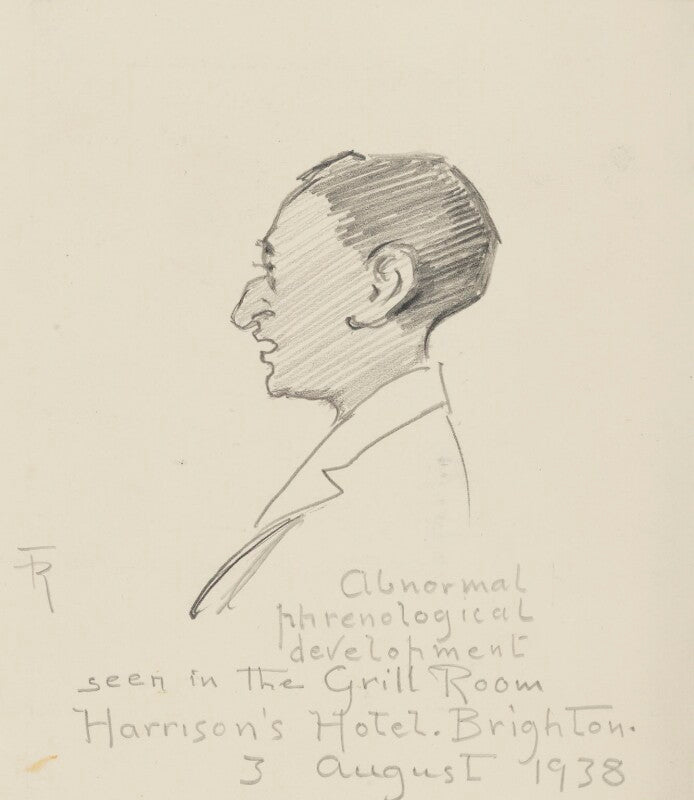 TR
Abnormal
phrenological
development
seen in the Grill Room
Harrison's Hotel. Brighton.
3 August 1938